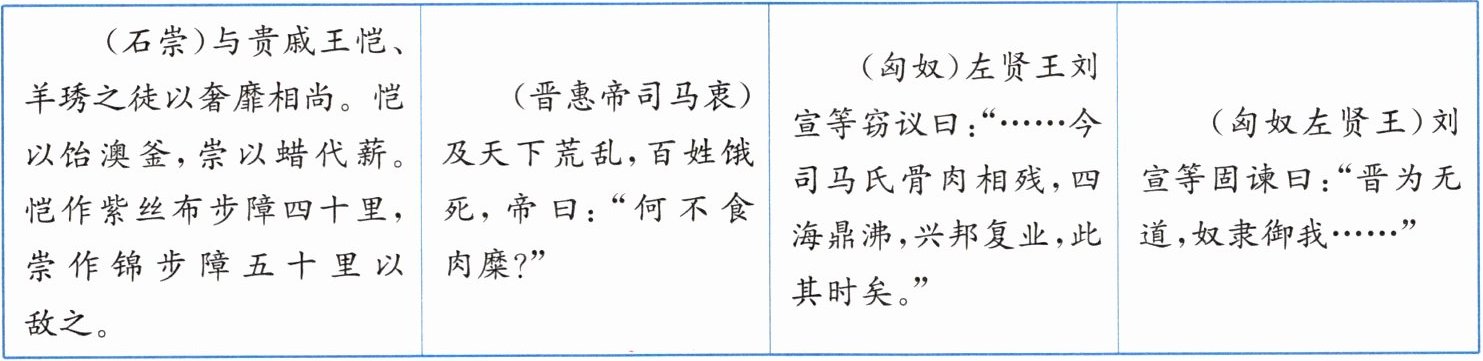 （石崇）与贵戚王恺、
羊琇之徒以奢靡相尚。恺
以饴澳釜，崇以蜡代薪。
恺作紫丝布步障四十里，
崇作锦步障五十里以
敌之。
（晋惠帝司马衷）
及天下荒乱，百姓饿
死，帝曰：“何不食
肉糜？”
（匈奴）左贤王刘
宣等窃议曰：“……今
司马氏骨肉相残，四
海鼎沸，兴邦复业，此
其时矣。”
（匈奴左贤王）刘
宣等固谏曰：“晋为无
道，奴隶御我……”